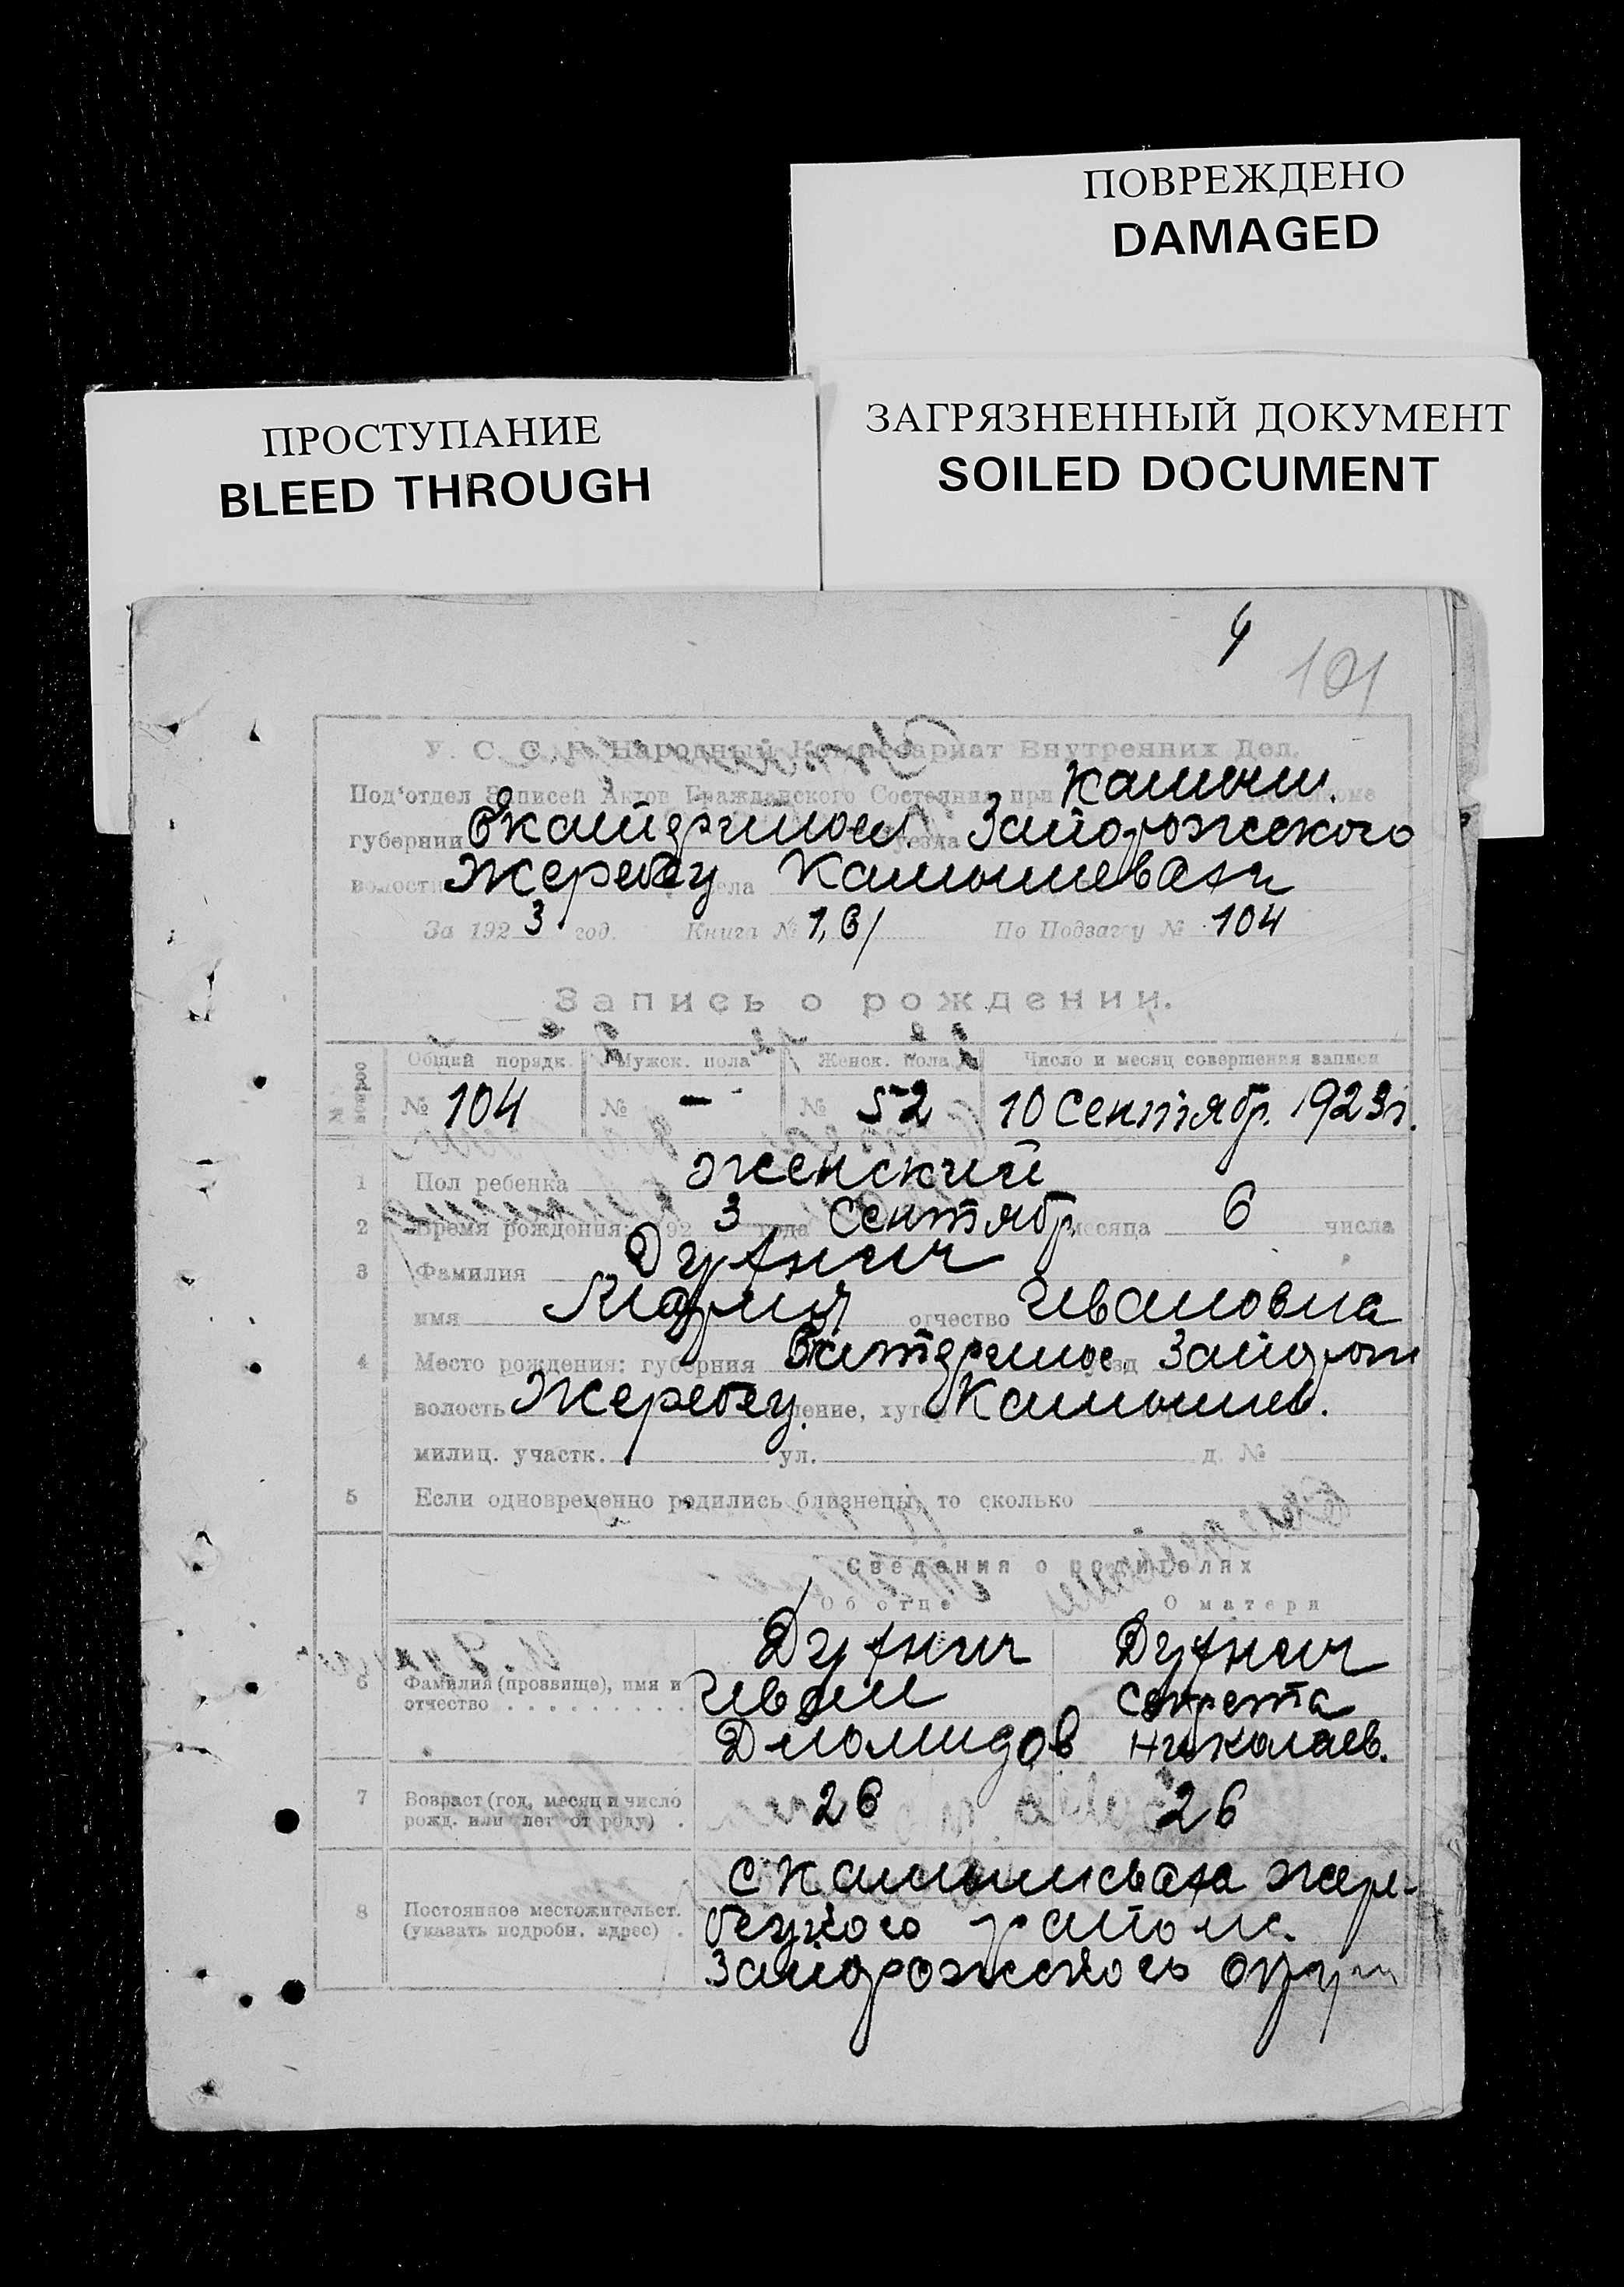 ПОВРЕЖДЕНО
DAMAGED
ПРОСТУПАНИЕ
BLEED THROUGH
ЗАГРЯЗНЕННЫЙ ДОКУМЕНТ
SOILED DOCUMENT
101
У. С. С. Р. Народный Комиссариат Внутренних Дел.
Под'отдел Записей Актов Гражданского Состояния при Камыш.
губернии уезда Запорожского
волости Жеребец села Камышеваха
За 192 3 год. Книга № По Подзагсу № 104
Запись о рождении.
Общий порядк. Мужск. пола Женск. пола Число и месяц совершения записи
№ 104 № - № 52 10 Сентябр. 1923 г.
1 Пол ребенка женский
2 Время рождения: 192 3 года Сентябр месяца 6 числа
3 Фамилия
имя Мария отчество Ивановна
4 Место рождения: губерния Запорож
волость Жеребец. Камышев.
милиц. участк. ул. д. №
5 Если одновременно родились близнецы, то сколько
Сведения о родителях
Об отце О матери
6 Фамилия (прозвище), имя и отчество Иван Диомидов Николаев.
7 Возраст (год, месяц и число рожд. или лет от роду) 26 26
8 Постоянное местожительст. (указать подробн. адрес) с Камышеваха Жере-
бецкого района
Запорожского округа